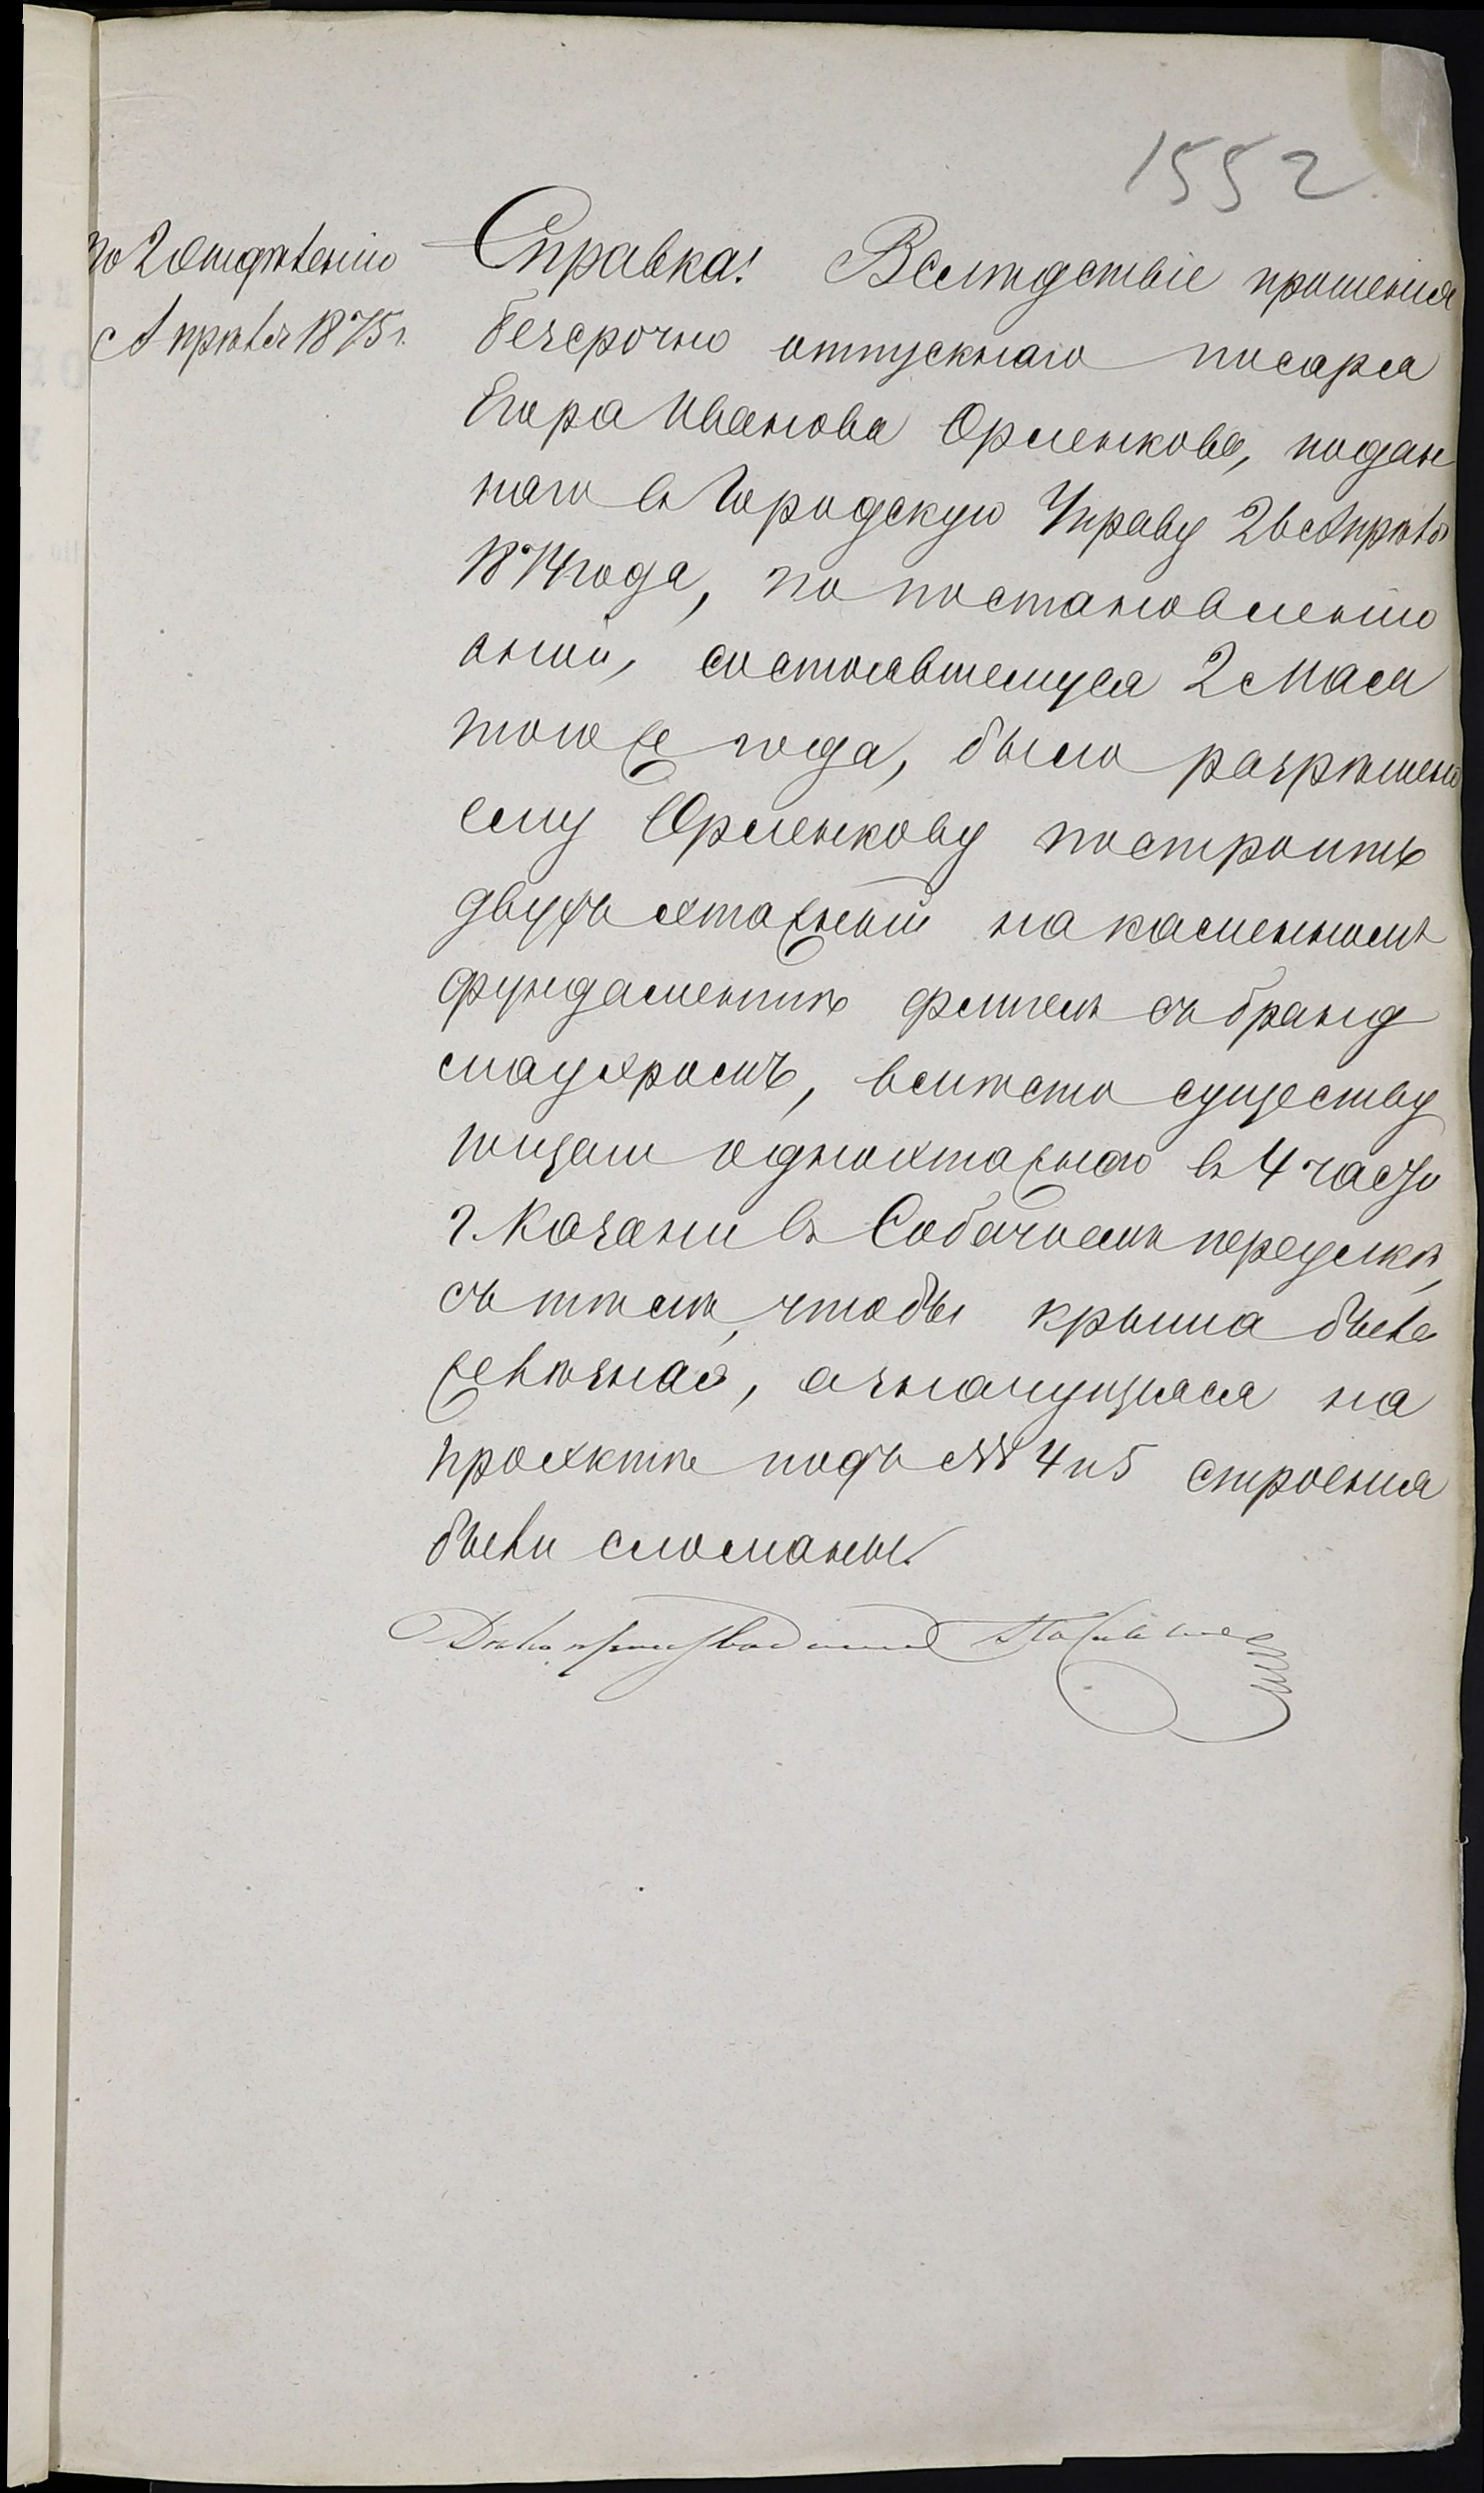 1552
По 2 Отдѣленію
Апрѣля 1875 г.
Справка! Вслѣдствіе прошенія
безсрочно отпускнаго писаря
Егора Иванова Орленкова, подан
наго въ Городскую Управу 26 Апрѣля
1874 года, по постановленію
оной, состоявшемуся 2 Мая
того же года, было разрѣшено
ему Орленкову построить
двухъ этажный на каменномъ
фундаментѣ флигель съ бранд
мауэромъ, вмѣсто существу
ющаго одноэтажнаго въ 4 части
г. Казани въ Собачьемъ переулкѣ,
съ тѣмъ, чтобы крыша была
желѣзная, а значущіяся на
проэктѣ подъ №№ 4 и 5 строенія
были сломаны.